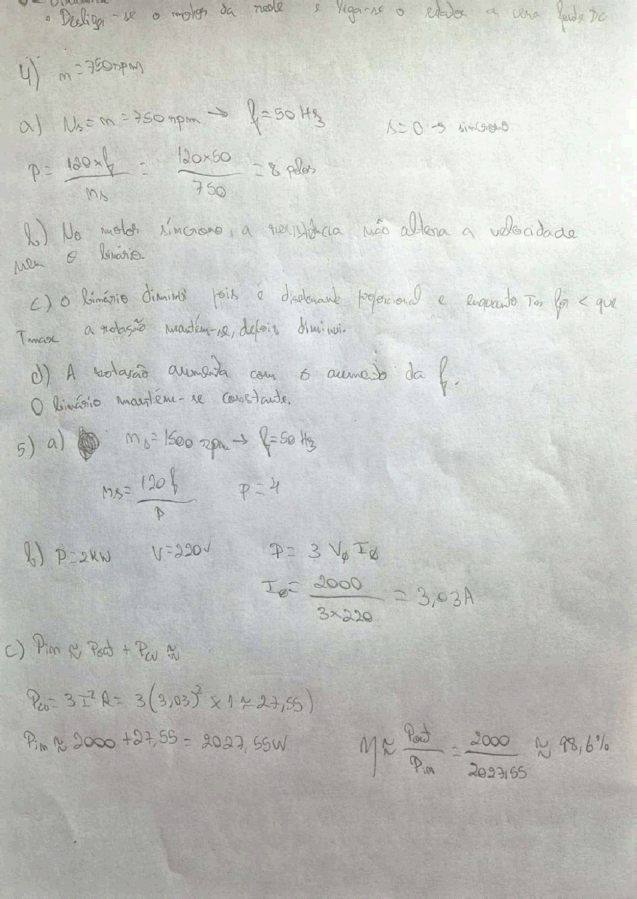 • Desliga-se o motor da rede e liga-se o estator a uma fonte DC
4) n = 750 rpm
a) Ns = n = 750 rpm → f = 50 Hz   s = 0 → síncrono
p = 120×f / ns = 120×50 / 750 = 8 polos
b) No motor síncrono, a resistência não altera a velocidade
nem o binário.
c) O binário diminui pois é diretamente proporcional e enquanto for < que
Tmax a rotação mantém-se, depois diminui.
d) A rotação aumenta com o aumento da f.
O binário mantém-se constante.
5) a) ns = 1500 rpm → f = 50 Hz
ns = 120 f / p   p = 4
b) P = 2 kW   V = 220 V   P = 3 VØ IØ
IØ = 2000 / 3×220 = 3,03 A
c) Pin ≈ Pout + Pcu ≈
Pcu = 3 I² R = 3 (3,03)² × 1 ≈ 27,55)
Pin ≈ 2000 + 27,55 = 2027,55 W   η ≈ Pout / Pin = 2000 / 2027,55 ≈ 98,6%